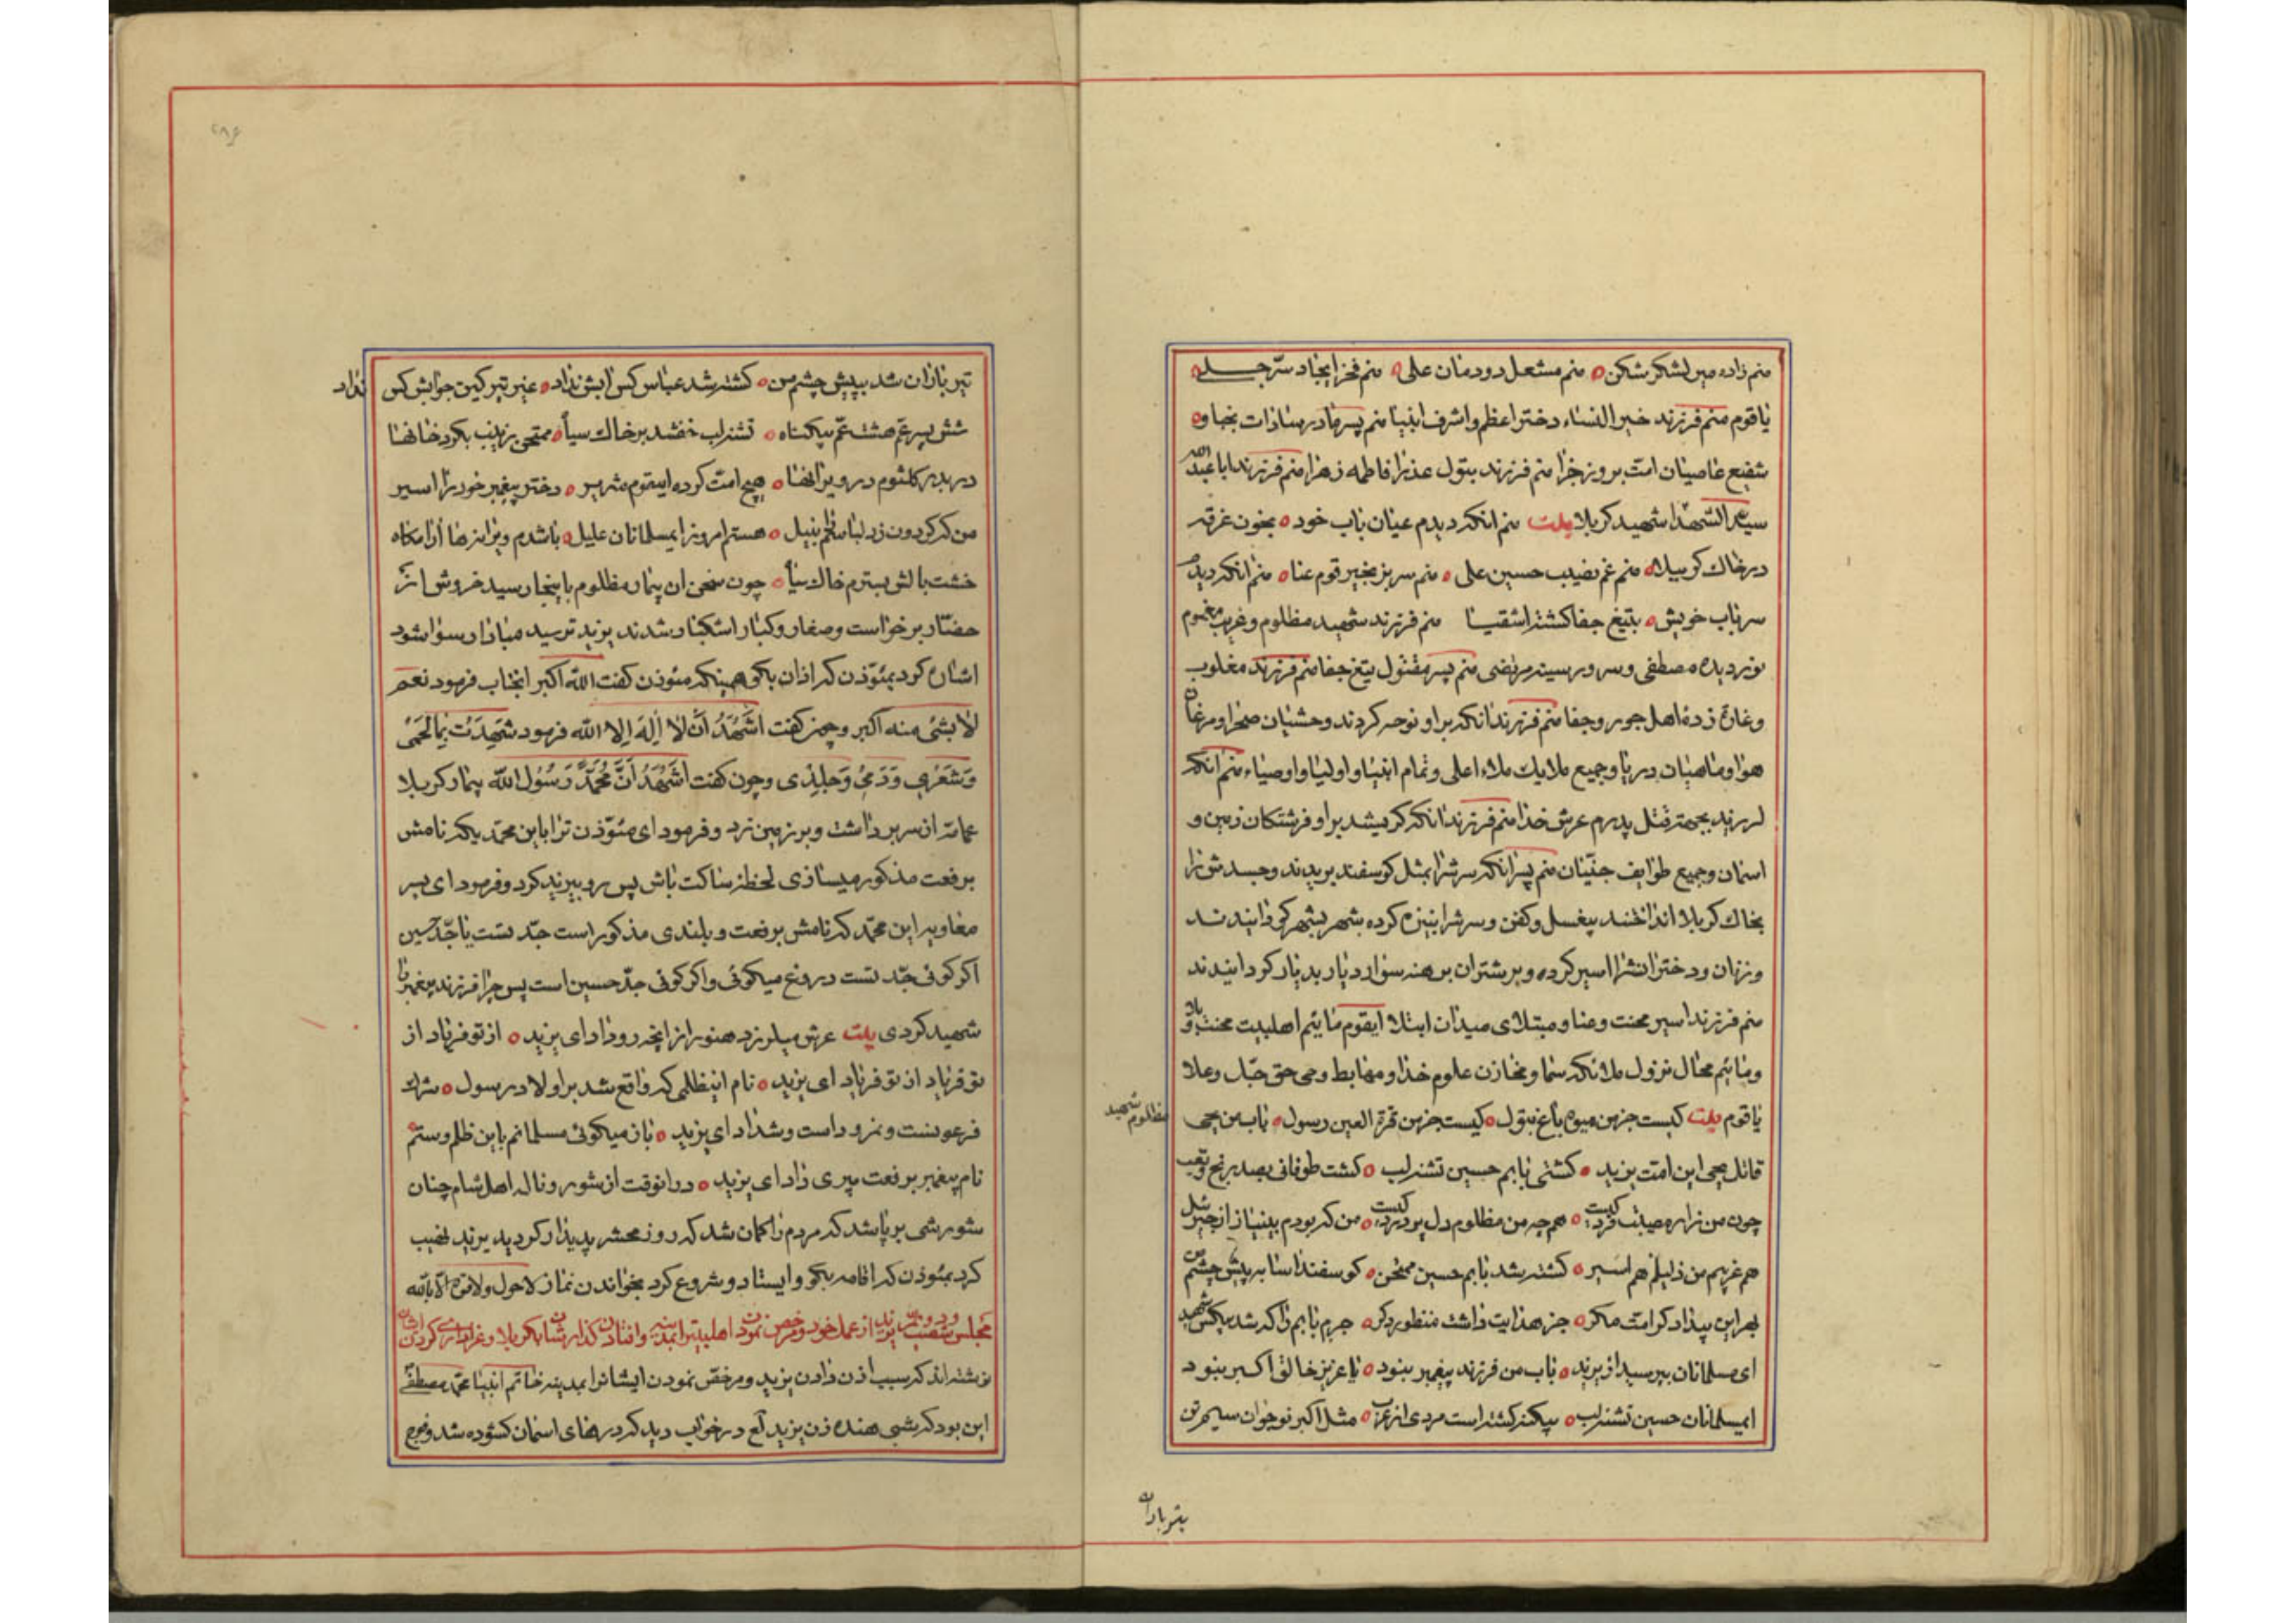 منم زاده میر لشکر شکن ه منم مشعل دودمان علی ه منم فخر ایجاد سرّ جلی ه
یا قوم منم فرزند خیر النساء دختر اعظم و اشرف انبیا منم پسر مادر سادات نجبا و
شفیع عاصیان امت بروز جزا منم فرزند بتول عذرا فاطمه زهرا منم فرزند ابا عبد الله
سید الشهدا شهید کربلا بیت منم انکه دیدم عیان باب خود ه بخون غرقه
در خاک کربلا ه منم غم نصیب حسین علی ه منم سر بزنجیر قوم عنا ه منم انکه دیدم
سر باب خویش ه بتیغ جفا کشته اشقیا منم فرزند شهید مظلوم و غریب مغموم
نور دیده مصطفی و سرور سینه مرتضی منم پسر مقتول تیغ جفا منم فرزند مغلوب
و غارة زدهٔ اهل جور و جفا منم فرزند انکه بر او نوحه کردند وحشیان صحرا و مرغان
هوا و ماهیان دریا و جمیع ملایک ملاء اعلی و تمام انبیا و اولیا و اوصیاء منم انکه
لرزید بجهة قتل پدرم عرش خدا منم فرزند انکه گریستند بر او فرشتکان زمین و
اسمان و جمیع طوایف جنّیان منم پسر انکه سرشرا بمثل کوسفند بریدند و جسدش را
بخاک کربلا انداختند بیغسل و کفن و سرشرا بنیزه کرده شهر بشهر کردانیدند
و زنان و دخترانشرا اسیر کرده و بر شتران برهنه سوار دیار بدیار کردانیدند
منم فرزند اسیر محنت و عنا و مبتلای میدان ابتلا ایقوم مائیم اهلبیت محنت و بلا
و مائیم محال نزول ملائکه سما و مخازن علوم خدا و مهابط وحی حق جلّ و علا
یا قوم بیت کیست جز من میوه باغ بتول ه کیست جز من قرة العین رسول ه باب من یحیی
مظلوم شهید
قاتل یحیی این امت یزید ه کشتی بابم حسین تشنه لب ه کشت طوفانی بصد رنج و تعب
چون من زار مصیبت فرد کیست ه همچه من مظلوم دل پر درد کیست ه من که بودم بینیاز از جبرئیل
هم غریبم من ذلیلم هم اسیر ه کشته شد بابم حسین ممتحن ه کوسفند اسا به پیش چشم من
بهر این بیداد کر امت مکر ه جز هدایت داشت منظور دکر ه جرم بابم را که شد بیکس شهید
ای مسلمانان بپرسید از یزید ه باب من فرزند پیغمبر نبود ه یا عزیز خالق اکبر نبود
ایمسلمانان حسین تشنه لب ه بیکنه کشته است مردی از عرب ه مثل اکبر نوجوان سیم تن
تیر باران
تیر باران شد به پیش چشم من ه کشته شد عباس کس ابش نداد ه غیر تیر کین جوابش کس
نداد
شش پسر عم هشت عم بیکناه ه تشنه لب خفتند بر خاک سیاه ه ممتحن زینب بکرد خانها
در بدر کلثوم در ویرانها ه هیچ امت کرده ایقوم شریر ه دختر پیغمبر خود را اسیر
هستم امروز ایمسلمانان علیل ه باشدم ویرانها آرامکاه
خشت بالش بسترم خاک سیاه ه چون سخن ان بیمار مظلوم باینجا رسید خروش از
حضّار برخواست و صغار و کبار اشکبار شدند یزید ترسید مبادا رسوا شود
اشاره کرد بمئوذن که اذان بکو همینکه مئوذن کفت الله اکبر انجناب فرمود نعم
لا شئ منه اکبر و چون کفت اشهد ان لا اله الا الله فرمود شهدت بها لحمی
و شعری و دمی و جلدی و چون کفت اشهد ان محمدا رسول الله بیمار کربلا
عمامه از سر برداشت و بر زمین زد و فرمود ای مئوذن ترا باین محمّد یکه نامش
برفعت مذکور میسازی لحظهٔ ساکت باش پس رو بیزید کرد و فرمود ای پسر
معاویه این محمّد که نامش برفعت و بلندی مذکور است جدّ تست یا جدّ حسین
اکر کوئی جدّ تست دروغ میکوئی و اکر کوئی جدّ حسین است پس چرا فرزند پیغمبر را
شهید کردی بیت عرش میلرزد هنوز از انچه رو داد ای یزید ه از تو فریاد از
تو فریاد از تو فریاد ای یزید ه نام اینظلمی که واقع شد بر اولاد رسول ه شرک
فرعونست و نمرود است و شداد ای یزید ه باز میکوئی مسلمانم باین ظلم و ستم
نام پیغمبر برفعت میبری داد ای یزید ه در انوقت از شور و ناله اهل شام چنان
شورشی بر پا شد که مردم را کمان شد که روز محشر پدیدار کردید یزید نهیب
کرد بمئوذن که اقامه بکو و ایستاد و شروع کرد بخواندن نماز لا حول ولا قوة الا بالله
نوشته اند که سبب اذن دادن یزید و مرخص نمودن ایشانرا بمدینه خاتم انبیا محمّد مصطفی
این بود که شبی هنده زن یزید لع در خواب دید که درهای اسمان کشوده شد و فوج
۲۸۶